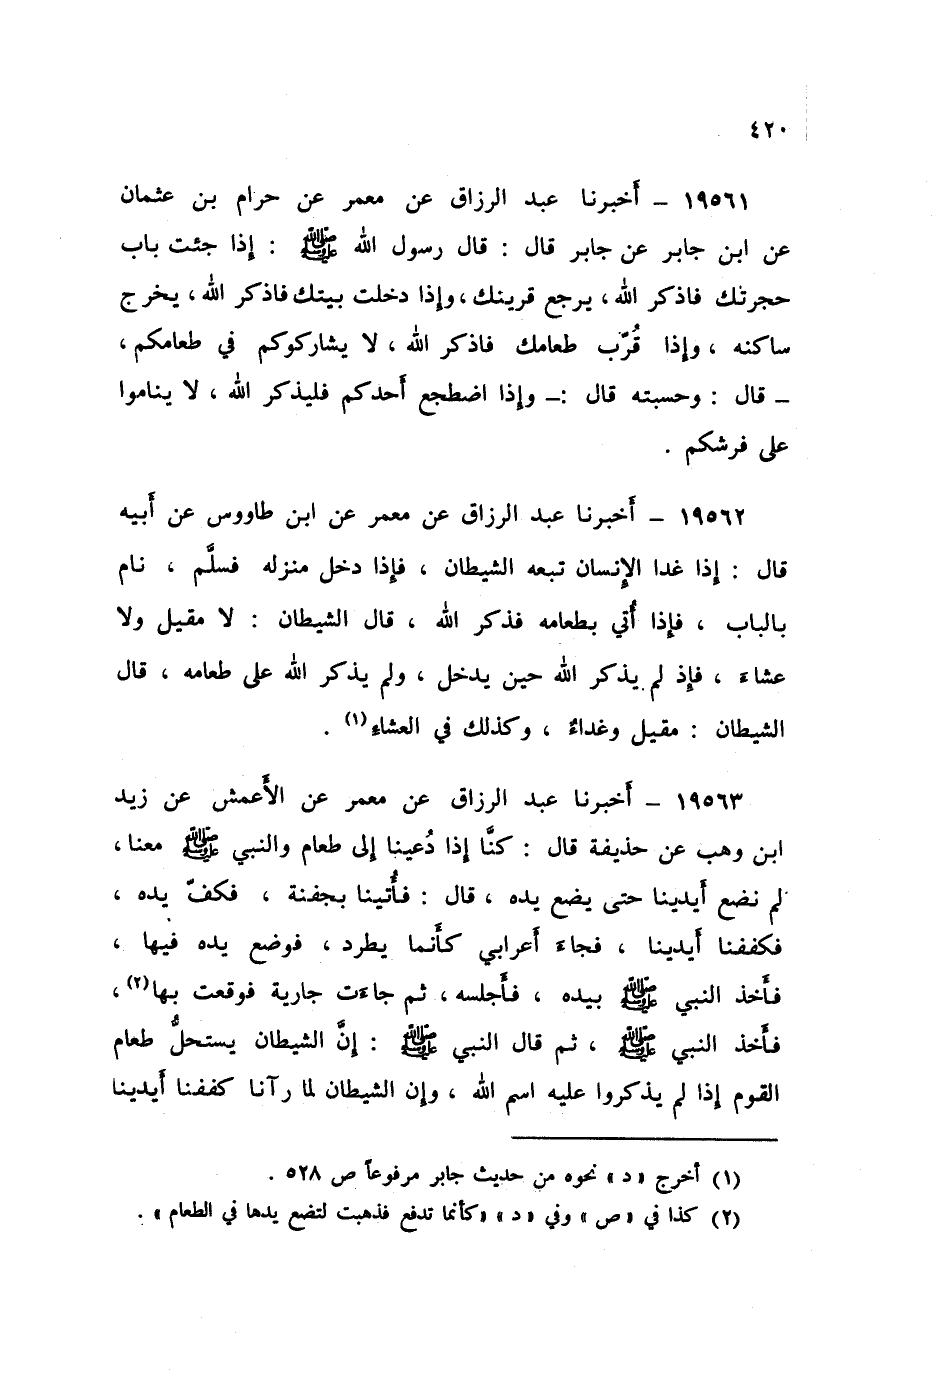 ٤٢٠
١٩٥٦١ – أَخبرنا عبد الرزاق عن معمر عن حرام بن عثمان
عن ابن جابر عن جابر قال : قال رسول الله ﷺ : إِذا جئت باب
حجرتك فاذكر الله ، يرجع قرينك ، وإِذا دخلت بيتك فاذكر الله ، يخرج
ساكنه ، وإِذا قُرّب طعامك فاذكر الله ، لا يشاركوكم في طعامكم ،
– قال : وحسبته قال :– وإِذا اضطجع أَحدكم فليذكر الله ، لا يناموا
على فرشكم .
١٩٥٦٢ – أَخبرنا عبد الرزاق عن معمر عن ابن طاووس عن أَبيه
قال : إِذا غدا الإِنسان تبعه الشيطان ، فإِذا دخل منزله فسلَّم ، نام
بالباب ، فإِذا أُتي بطعامه فذكر الله ، قال الشيطان : لا مقيل ولا
عشاءَ ، فإِذ لم يذكر الله حين يدخل ، ولم يذكر الله على طعامه ، قال
الشيطان : مقيل وغداءٌ ، وكذلك في العشاءِ(١) .
١٩٥٦٣ – أَخبرنا عبد الرزاق عن معمر عن الأَعمش عن زيد
ابن وهب عن حذيفة قال : كنَّا إِذا دُعينا إِلى طعام والنبي ﷺ معنا ،
لم نضع أَيدينا حتى يضع يده ، قال : فأُتينا بجفنة ، فكفّ يده ،
فكففنا أَيدينا ، فجاءَ أَعرابي كأَنما يطرد ، فوضع يده فيها ،
فأَخذ النبي ﷺ بيده ، فأَجلسه ، ثم جاءَت جارية فوقعت بها(٢) ،
فأَخذ النبي ﷺ ، ثم قال النبي ﷺ : إِنَّ الشيطان يستحلُّ طعام
القوم إِذا لم يذكروا عليه اسم الله ، وإِن الشيطان لما رآنا كففنا أَيدينا
(١) أخرج « د » نحوه من حديث جابر مرفوعاً ص ٥٢٨ .
(٢) كذا في « ص » وفي « د » «كأنما تدفع فذهبت لتضع يدها في الطعام » .